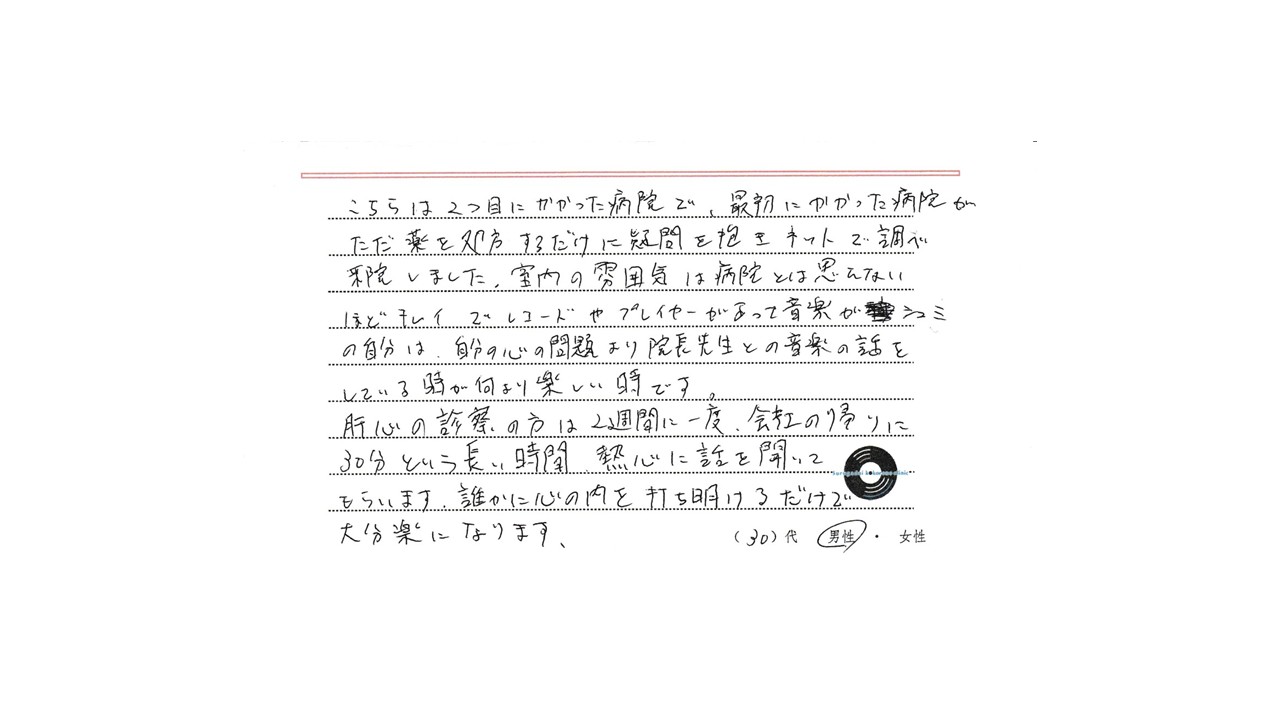 こちらは2つ目にかかった病院で、最初にかかった病院が
ただ薬を処方するだけに疑問を抱きネットで調べ
来院しました。室内の雰囲気は病院とは思えない
ほどキレイでレコードやプレイヤーがあって音楽がシュミ
の自分は、自分の心の問題より院長先生との音楽の話を
している時が何より楽しい時です。
肝心の診察の方は2週間に一度、会社の帰りに
30分という長い時間、熱心に話を聞いて
もらいます。誰かに心の内を打ち明けるだけで
大分楽になります、
(30)代 男性・女性